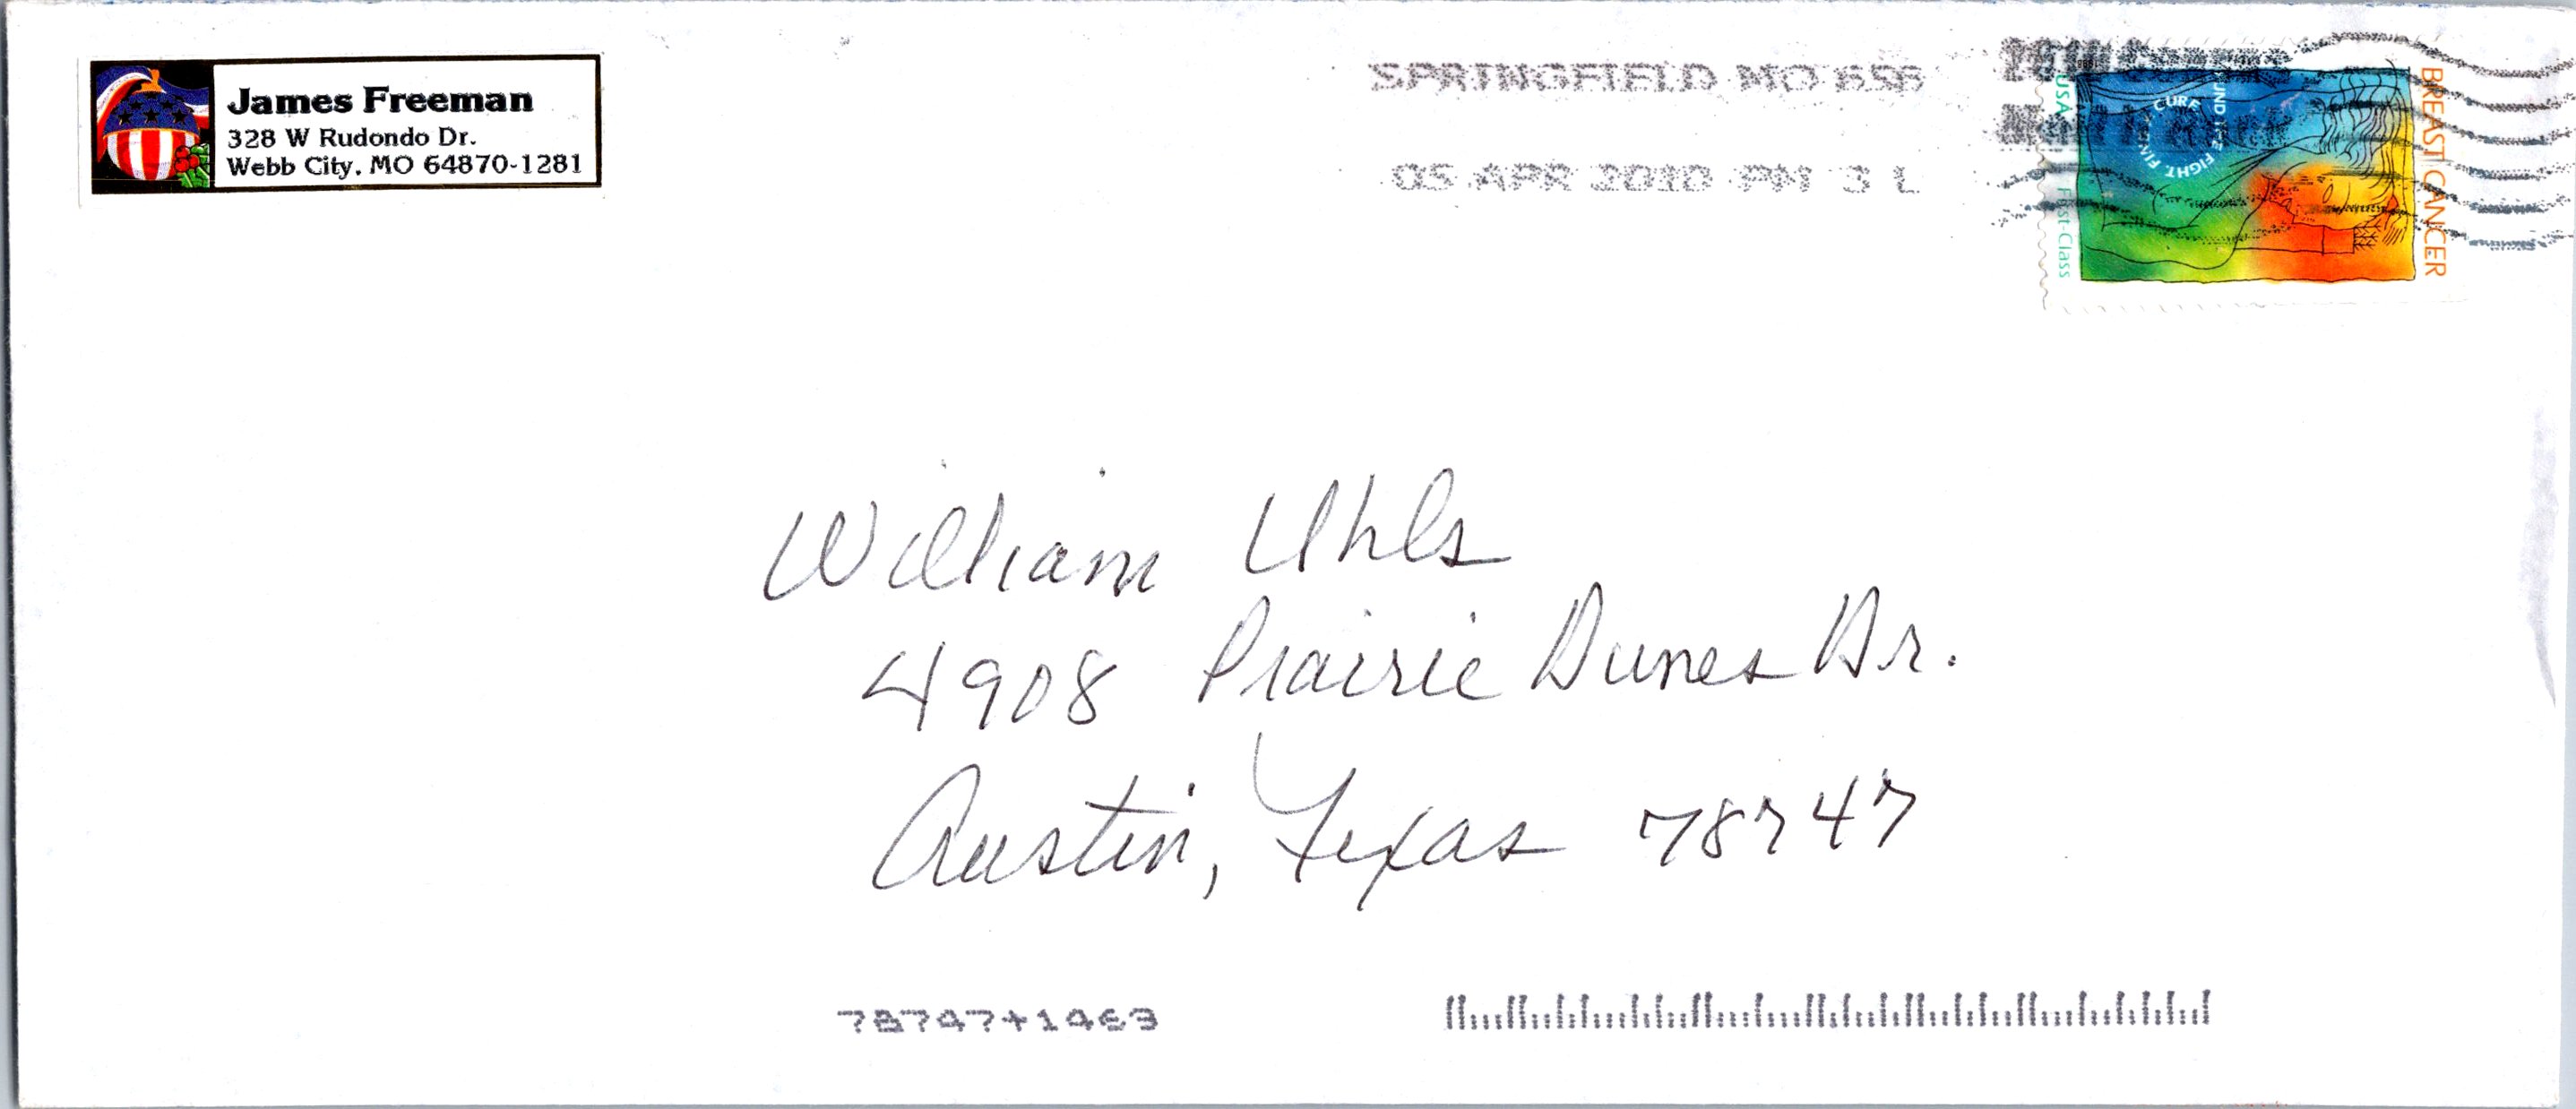 James Freeman
328 W Rudondo Dr.
Webb City, MO 64870-1281
SPRINGFIELD MO 658
05 APR 2010 PM 3 L
2010 Census
BREAST CANCER
FUND THE FIGHT. FIND A CURE
USA First-Class
1998
William Uhls
4908 Prairie Dunes Dr.
Austin, Texas 78747
78747+1463